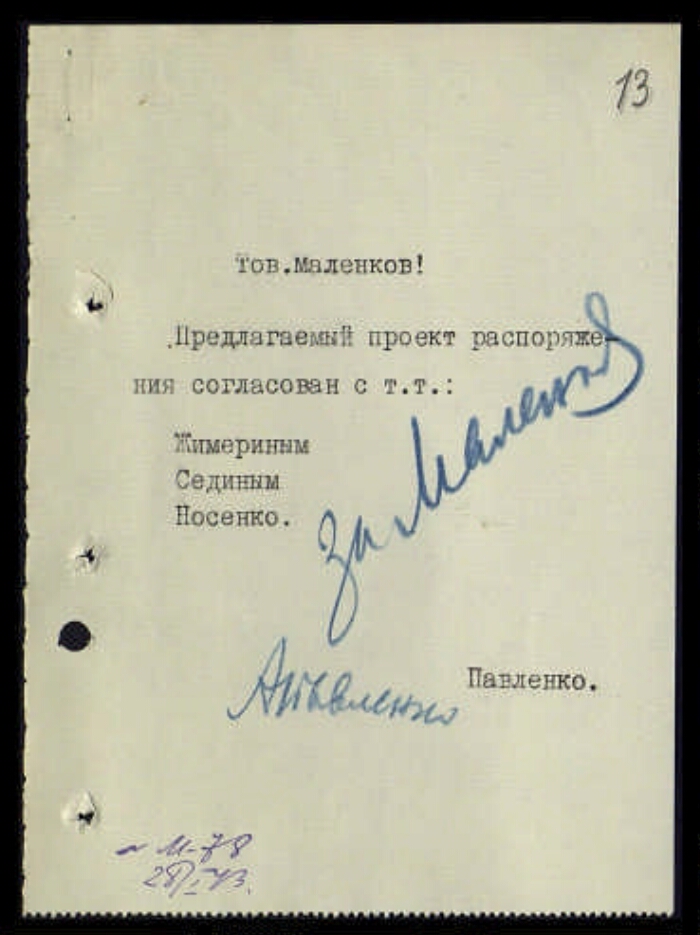 13
Тов.Маленков!
Предлагаемый проект распоряже-
ния согласован с т.т.:
Жимериным
Сединым
Носенко.
за Маленков
Павленко.
АПавленко
М-78
28/I-43.